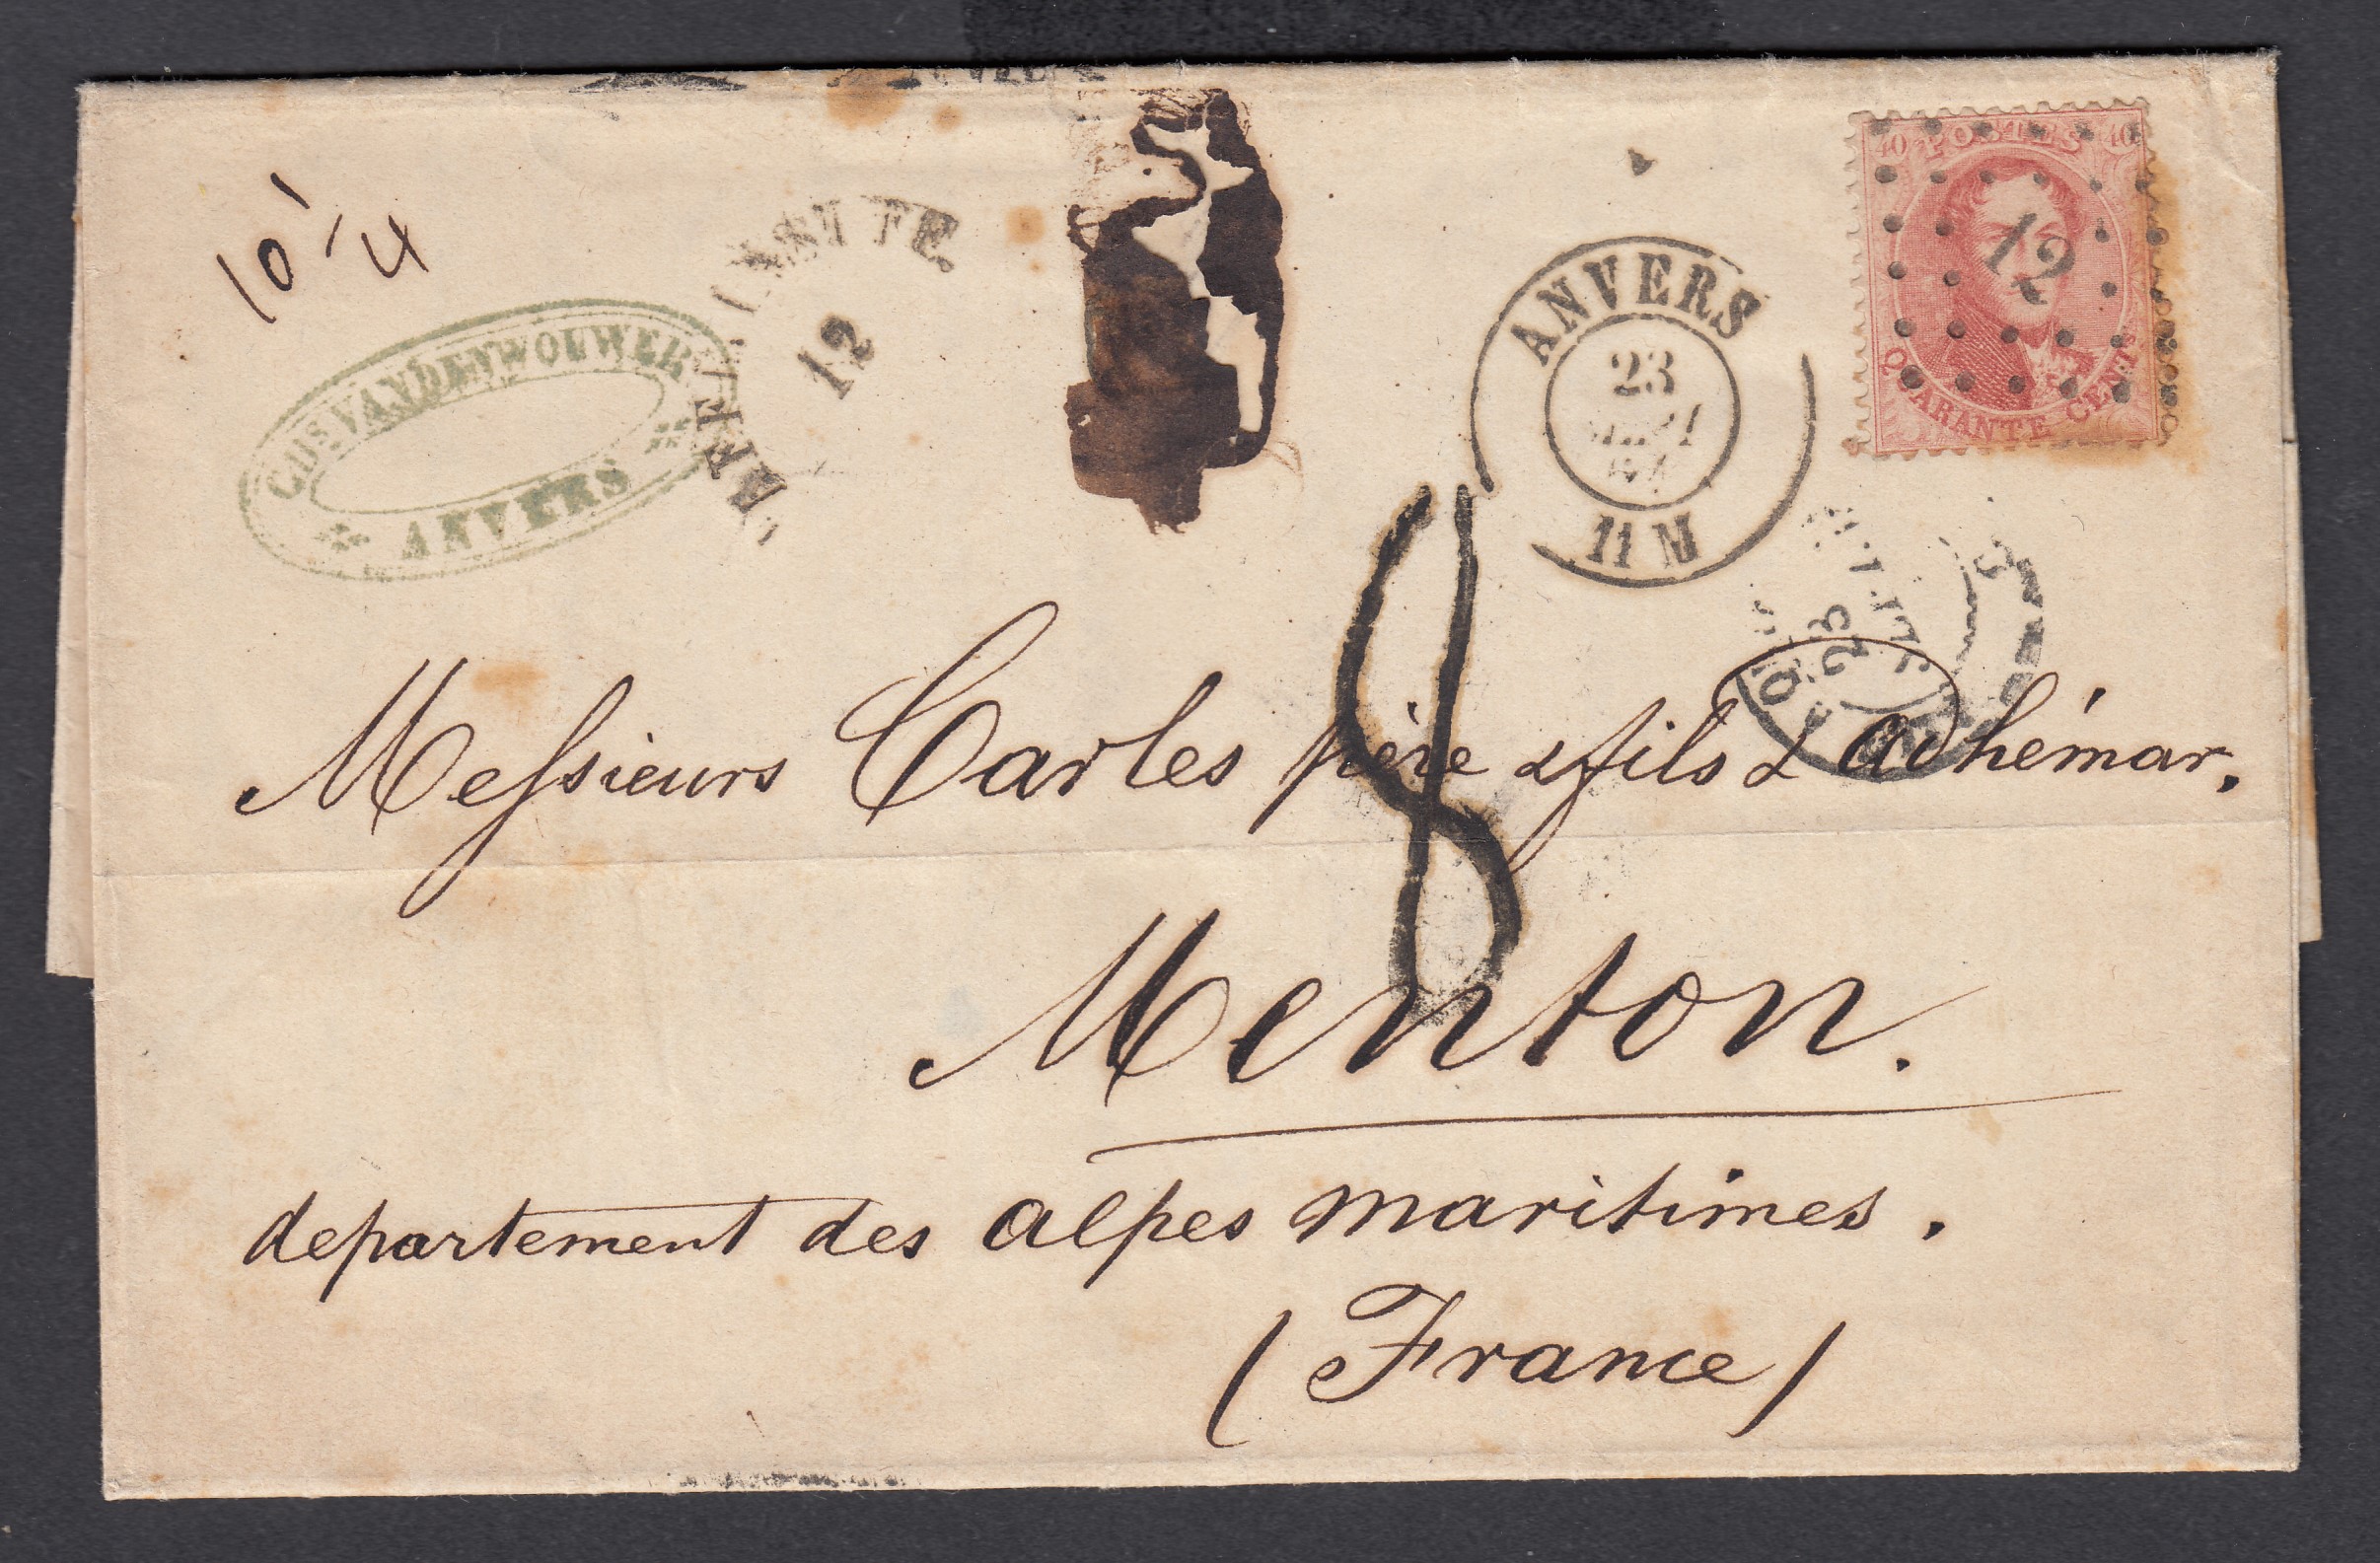 10 1/4
CDS VANDENWOUWER
ANVERS
12
ANVERS
23
11 M
POSTES
40 40
12
QUARANTE CENTS
23
8
Messieurs Carles père & fils & adhémar.
Menton.
departement des alpes maritimes.
(France)